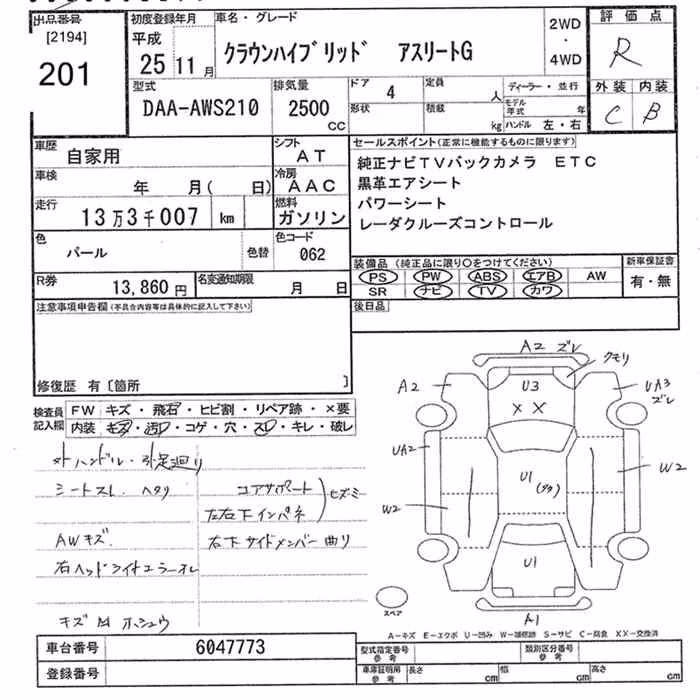 出品番号 初度登録年月 車名・グレード 2WD ・ 4WD 評価点
[2194] 平成 クラウンハイブリッド アスリートG R
201 25年 11月
型式 排気量 ドア 定員 ディーラー・並行 外装 内装
DAA-AWS210 2500 CC 4 人 モデル年式 年 C B
形状 積載 kg ハンドル 左・右
車歴 自家用 シフト AT セールスポイント(正常に機能するものに限ります)
車検 年 月( 日) 冷房 AAC 純正ナビTVバックカメラ ETC
走行 13万3千007 km 燃料 ガソリン 黒革エアシート
色 パール 色替 色コード 062 パワーシート
レーダクルーズコントロール
装備品(純正品に限り○をつけてください) 新車保証書
R券 13,860円 名変通知期限 月 日 PS PW ABS エアB AW 有・無
SR ナビ TV カワ
注意事項申告欄(不具合内容等は具体的に記入して下さい) 後日品
修復歴 有〔箇所 〕
検査員記入欄 FW キズ・飛石・ヒビ割・リペア跡・×要
内装 キズ・汚レ・コゲ・穴・スレ・キレ・破レ
A2 ズレ
クモリ
A2 U3 UA3 ズレ
× ×
UA2 U1 W2
W2 U1
A1
スペア
シートスレ ヘタリ コアサポート
左右下インパネ ヒズミ
AWキズ 右下サイドメンバー曲リ
A-キズ E-エクボ U-凹み W-補修跡 S-サビ C-腐食 XX-交換済
車台番号 6047773 型式指定番号 参考 類別区分番号 参考
登録番号 車庫証明用 参考 長さ cm 幅 cm 高さ cm